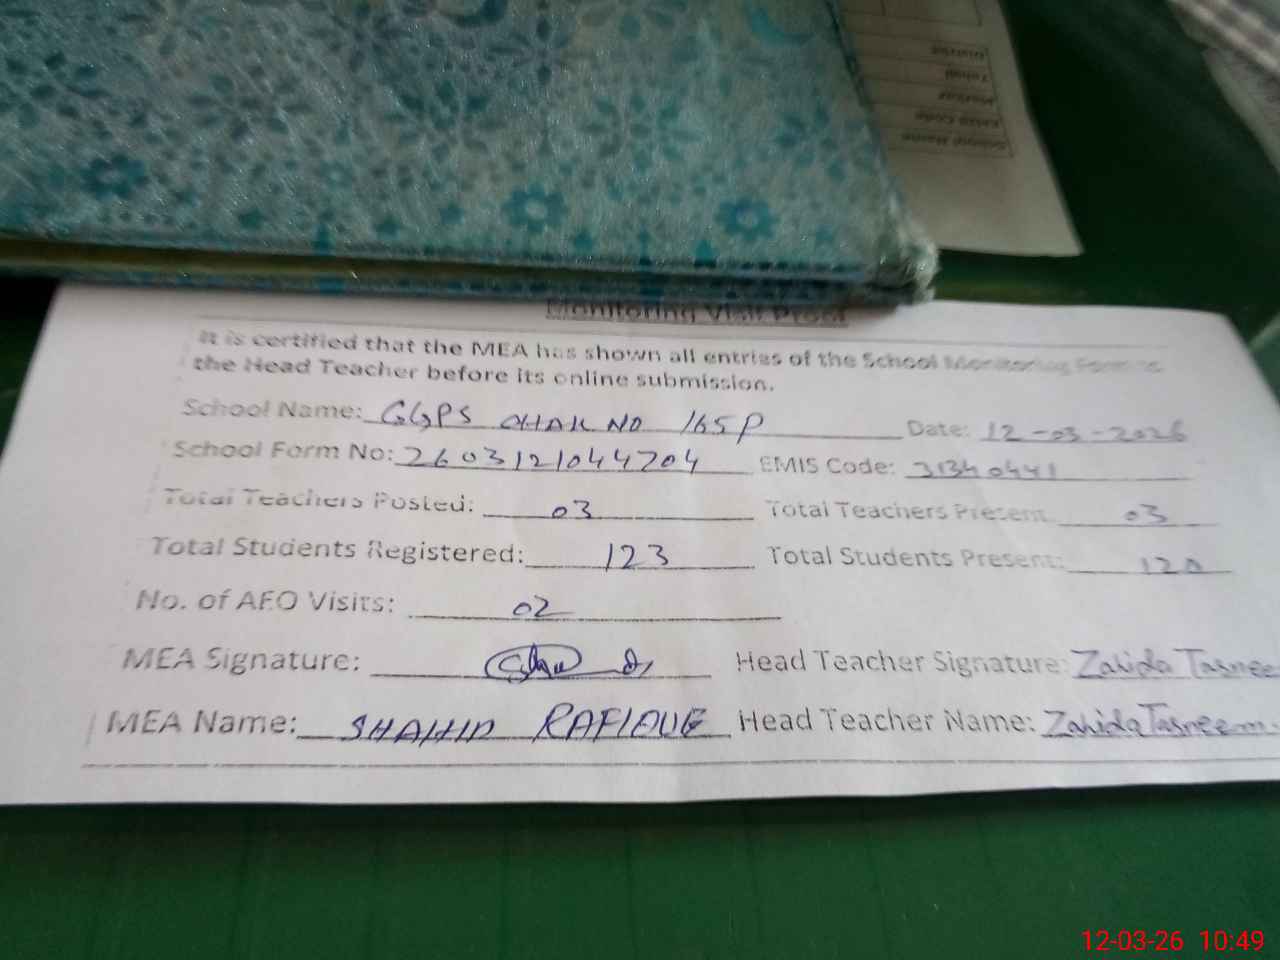 District
Tehsil
Markaz
EMIS Code
School Name
Monitoring Visit Proof
It is certified that the MEA has shown all entries of the School Monitoring Form to
the Head Teacher before its online submission.
School Name: GGPS CHAK NO 165P Date: 12-03-2026
School Form No: 2603121044704 EMIS Code: 31340441
Total Teachers Posted: 03 Total Teachers Present: 03
Total Students Registered: 123 Total Students Present: 120
No. of AEO Visits: 02
MEA Signature: Head Teacher Signature: Zahida Tasnee
MEA Name: SHAHID RAFIQUE Head Teacher Name: Zahida Tasneem
12-03-26 10:49